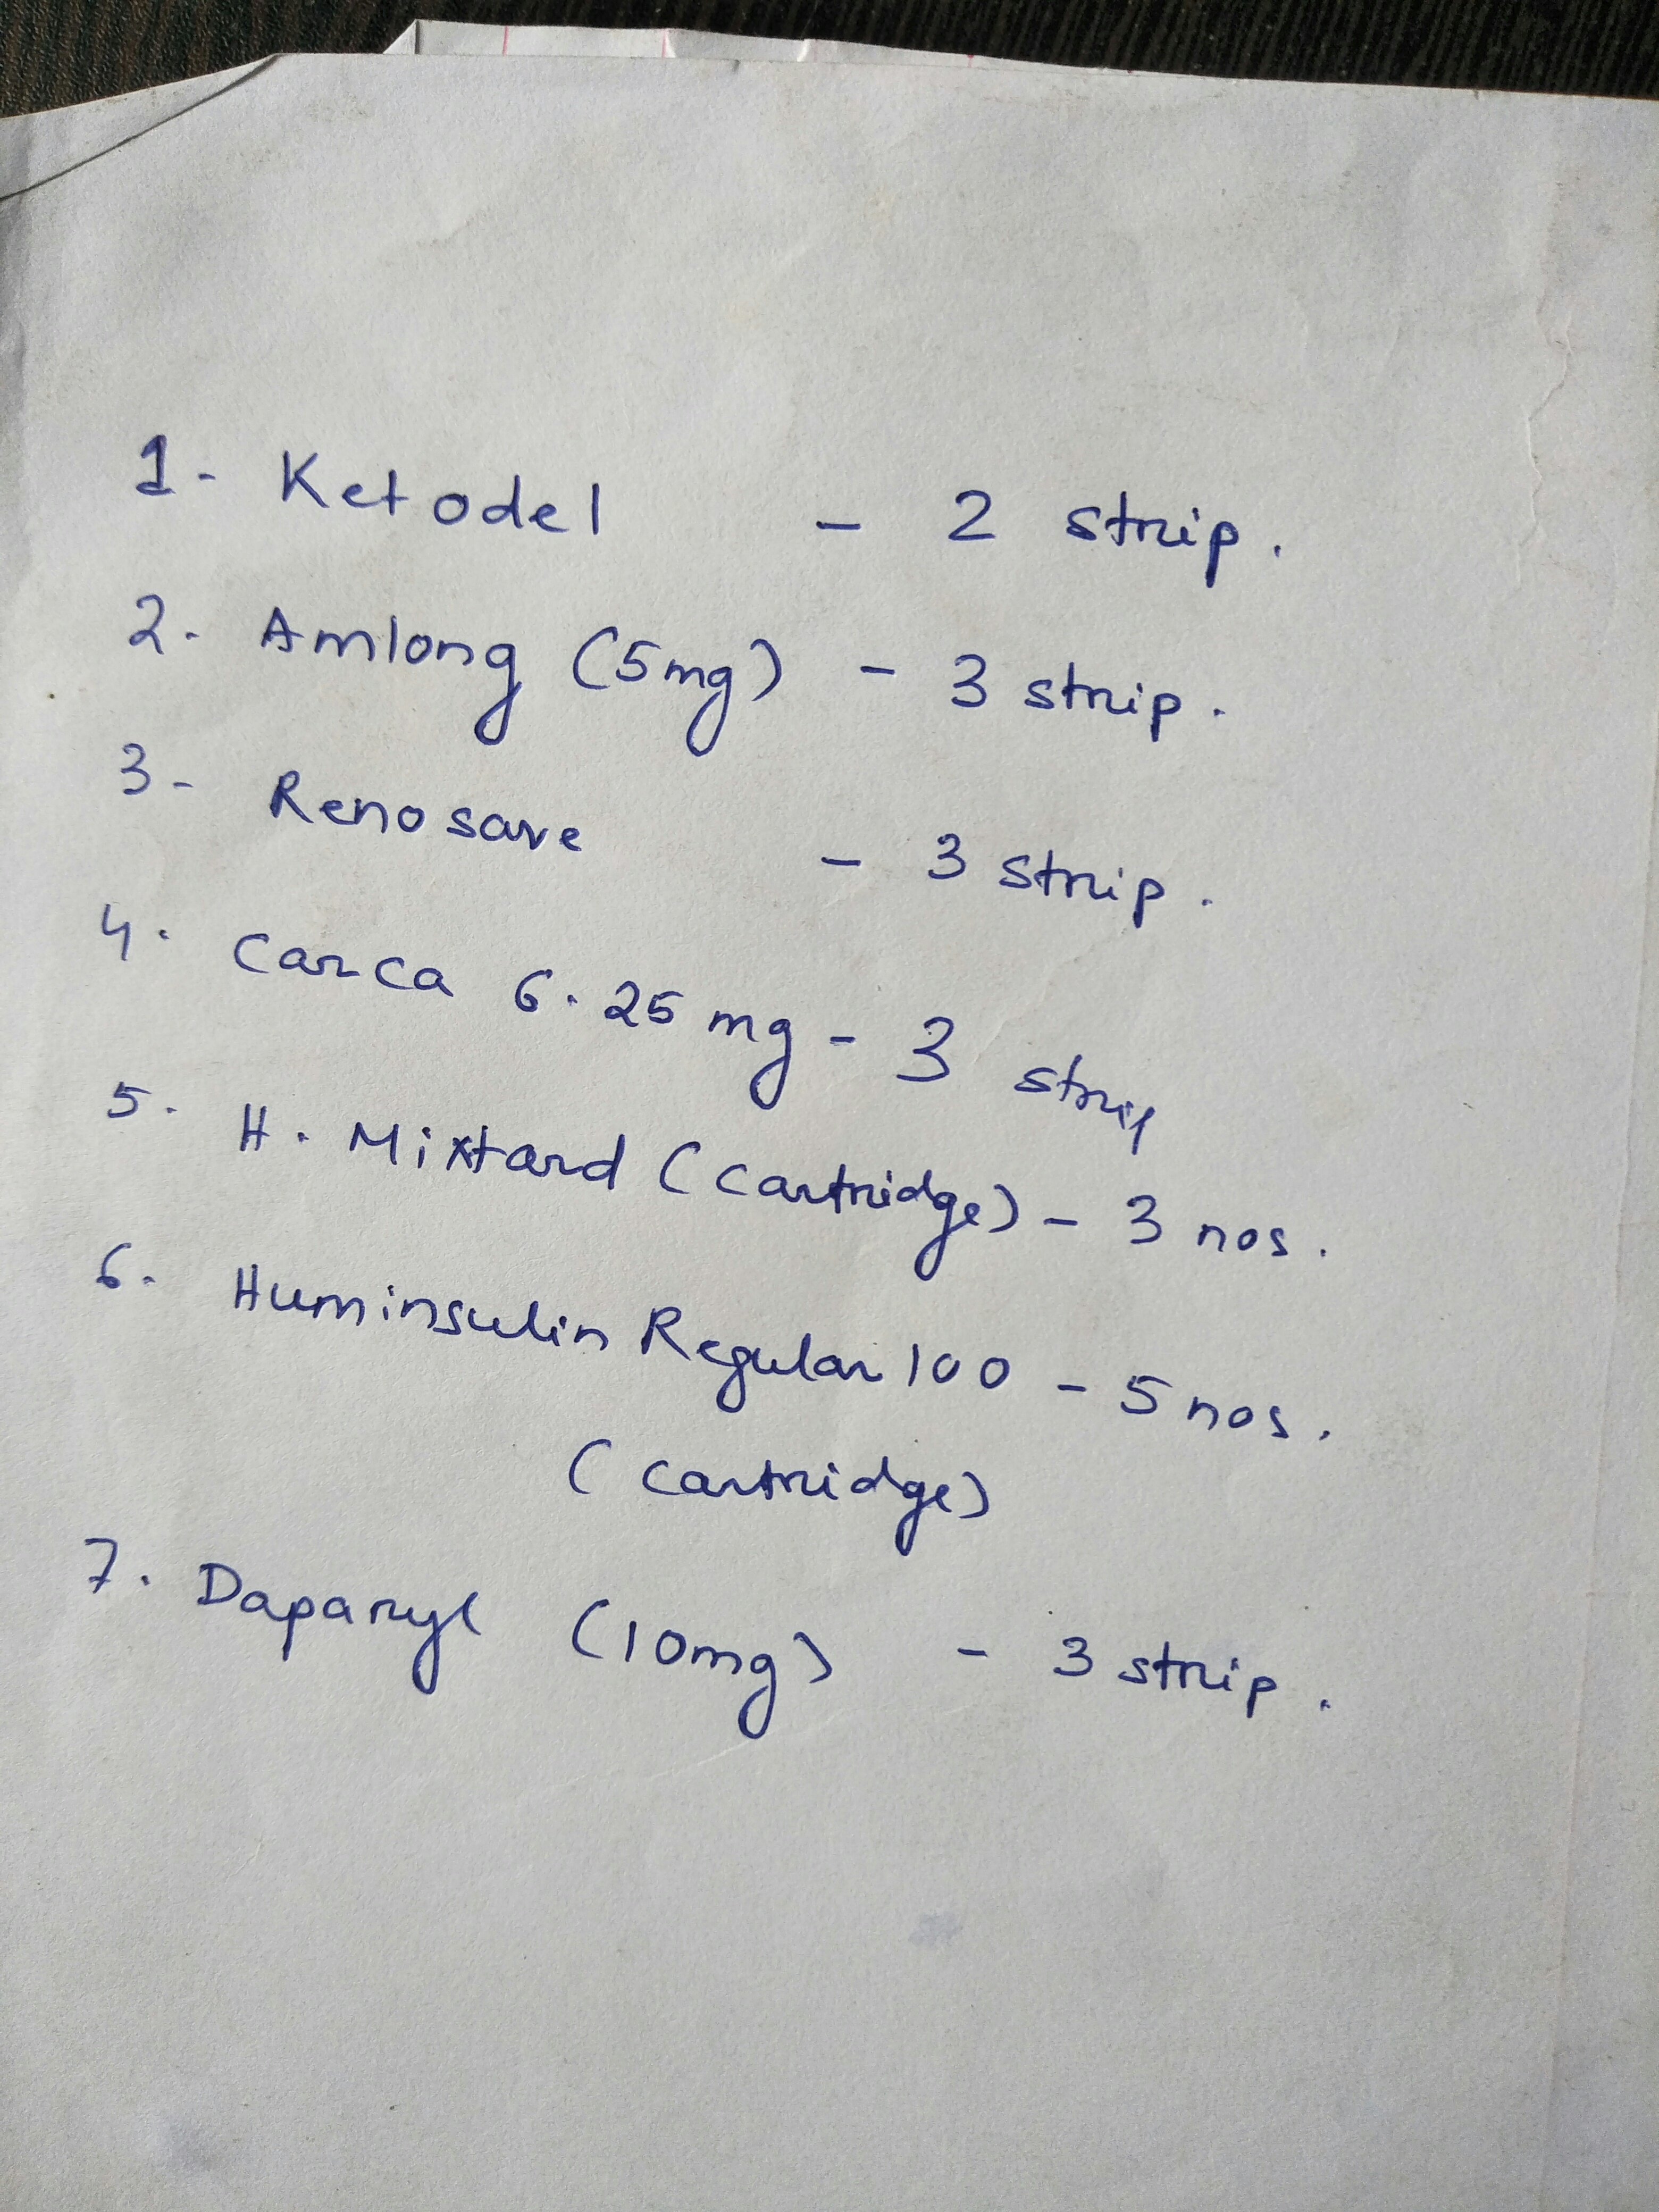 1- Ketodel - 2 strip.
2. Amlong (5mg) - 3 strip.
3- Renosave - 3 strip.
4. Carca 6.25 mg - 3 strip
5. H. Mixtard (Cartridge) - 3 nos.
6. Huminsulin Regular 100 - 5 nos.
(Cartridge)
7. Daparyl (10mg) - 3 strip.